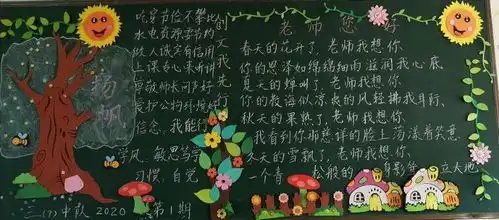 扬帆
吃穿节俭不攀比
水电资源要节约
做人诚实有信用
上课专心来听讲
尊敬师长问声好
爱护公物环境好
信念:我能行
学风:敏思苦学
习惯:自觉
三(7)中队 2020 第1期
创文我先行
老师您好
春天的花开了,老师我想你
你的恩泽如绵绵细雨滋润我心底
夏天的蝉叫了,老师我想你,
你的教诲似凉爽的风轻拂我耳际.
秋天的果熟了,老师我想你.
我看到你那慈祥的脸上荡漾着笑意.
冬天的雪飘了,老师我想你.
一个青松般的身影 立天地